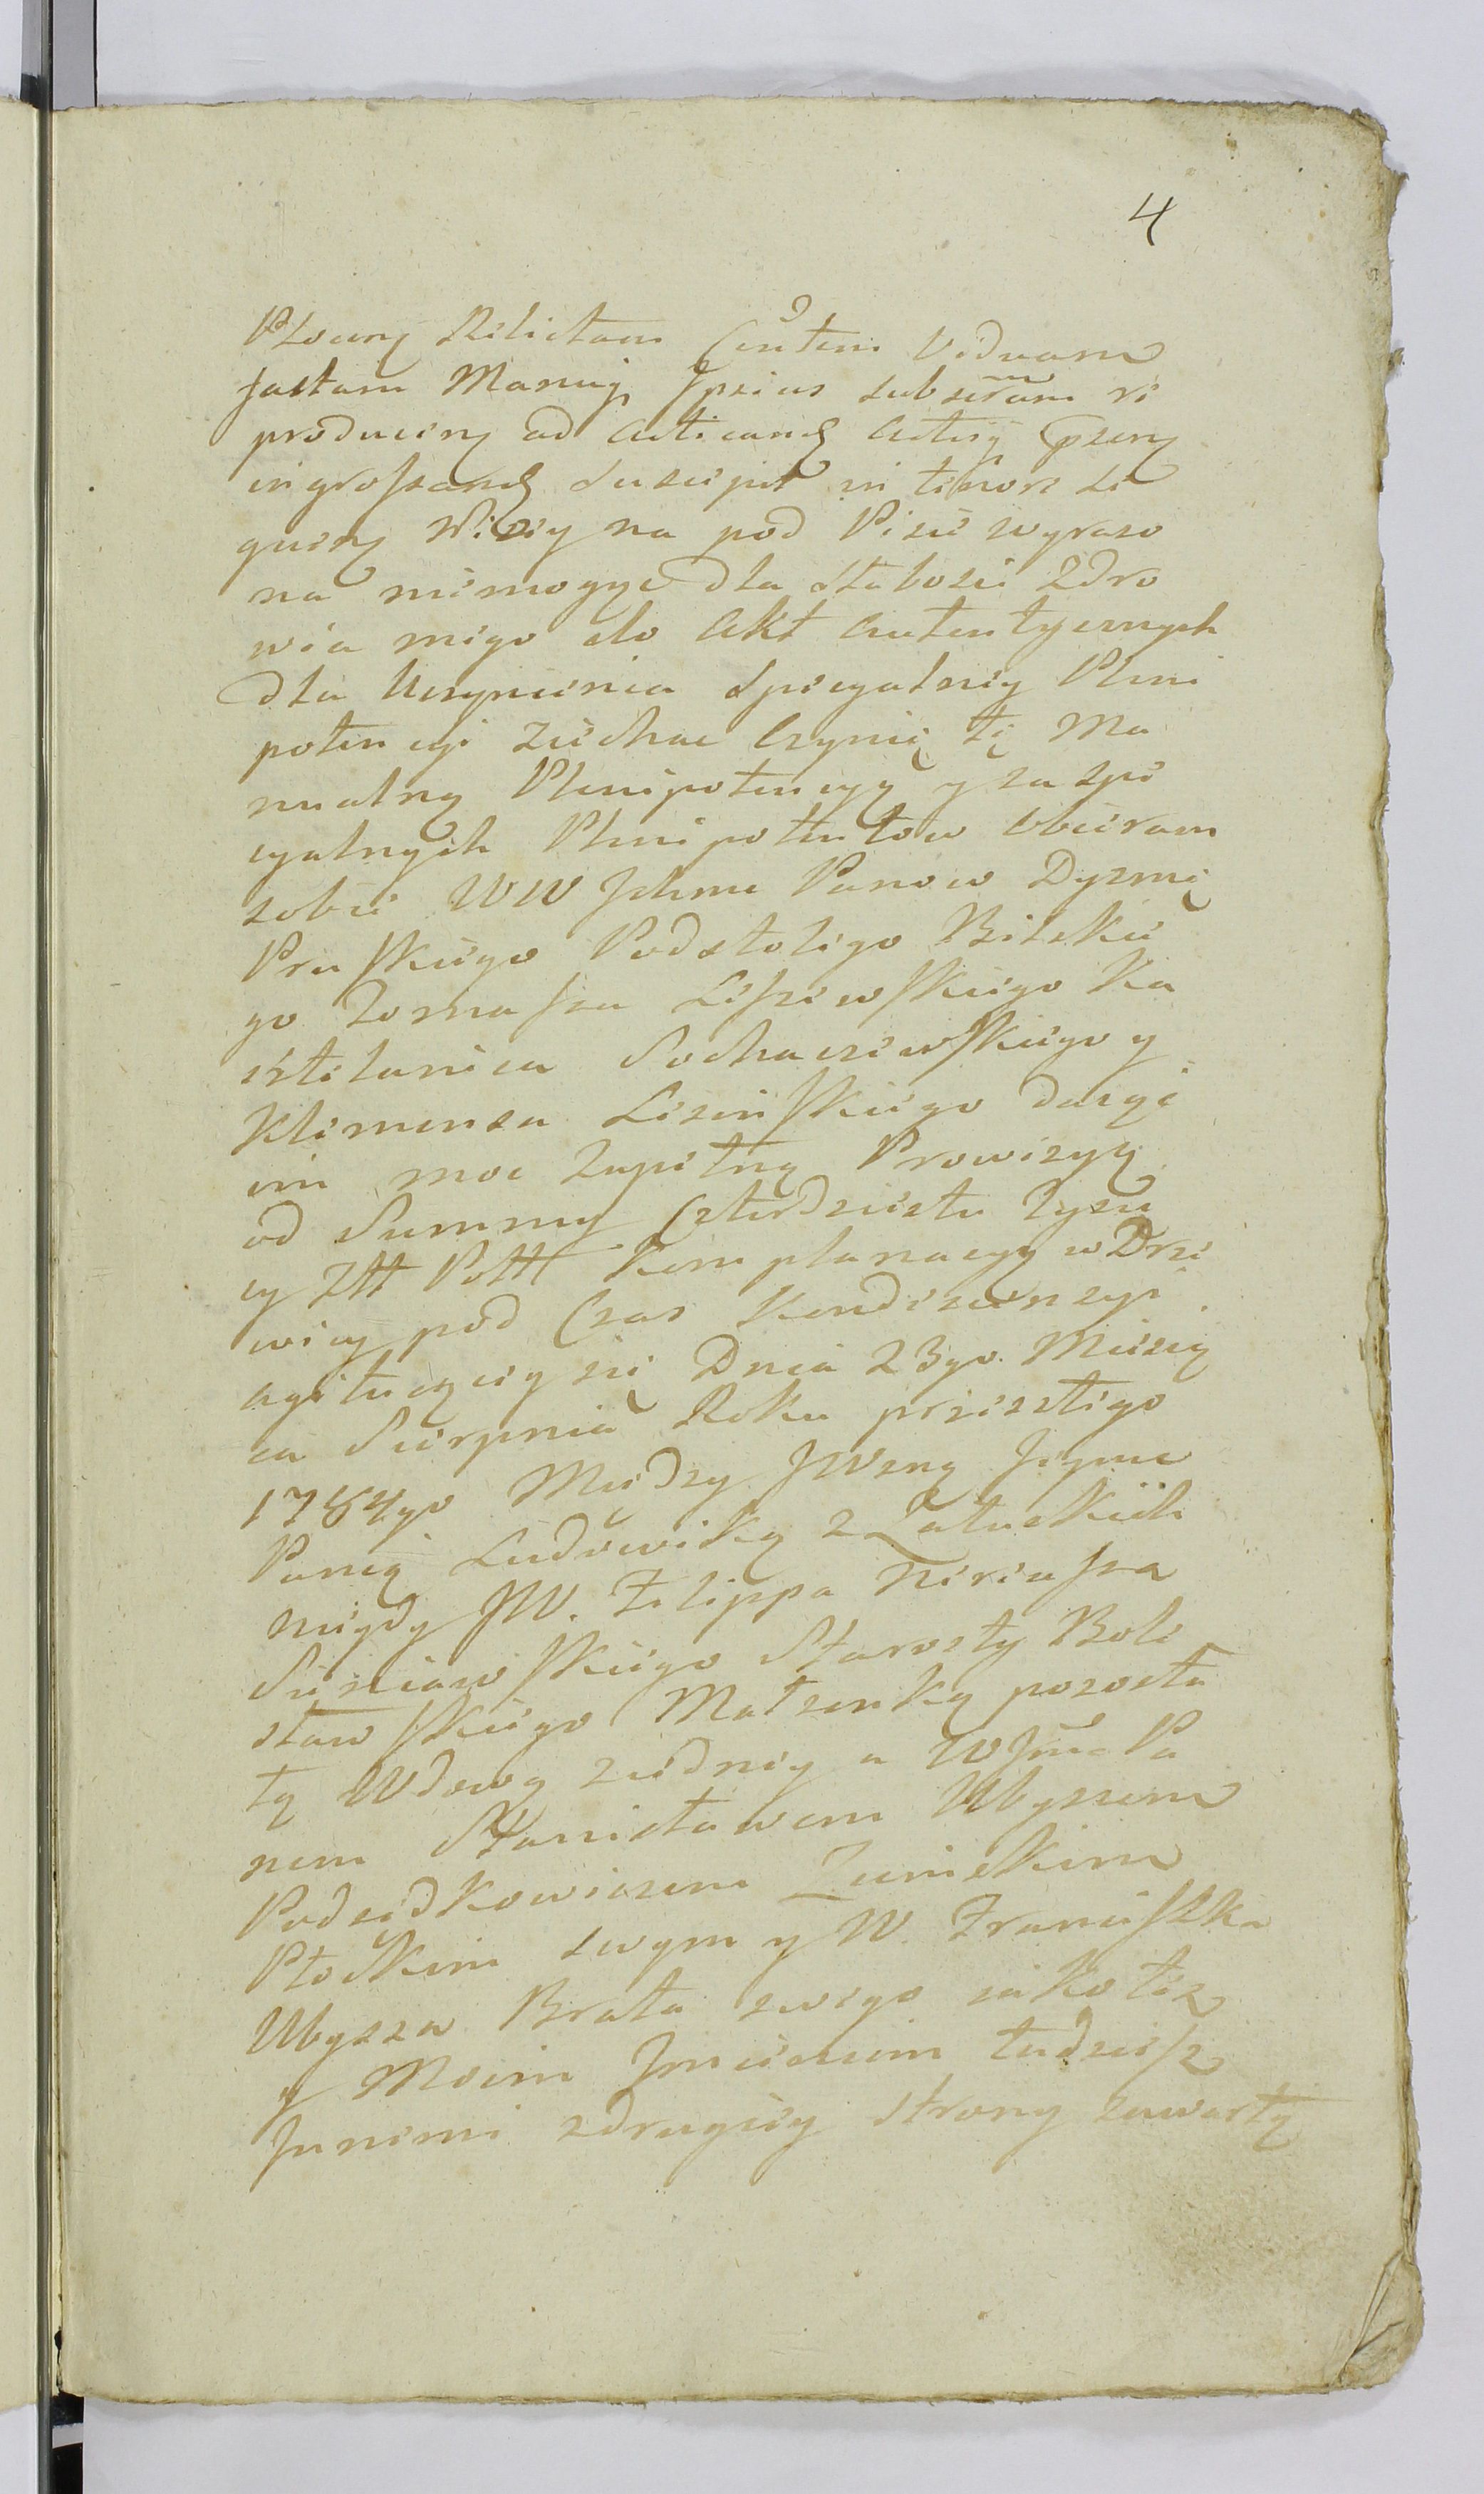 4
Ploceñ Relictam autem Viduam
factam Manuq Ipsius subscram re
producens ad acticand Actisq psens
ingrossand suscepit in tenore se
quens Niżey na pod Pisie wyrazo
na niemogąc dla słabości Zdro
wia mego do Akt Autentycznych
dla Uczynienia Specyalney Pleni
potencyi ziechac Czynię tę Ma
nualną Plenipotencyą y za spe
cyalnych Plenipotentow obieram
sobie WW Ichme Panow Dyzmę
Pruskiego Podstolego Bielskie
go Tomasza Liszewskiego Ka
sztelanica Sochaczewskiego y
Klimensa Lisinskiego daiąc
im moc zupełną Prowizyą
od Summy Czterdziestu Tysię
cy Złł Polll Komplanacyą w Drze
wicy pod Czas Kondescensyi
agituiącey się Dnia 23go Miesią
ca Sierpnia Roku przeszłego
1764go Między JWzną Jeyme
Panią Ludowiką z Załuskich
niegdy JW. Filippa Neriusza
Sieniawskiego Starosty Bole
sławskiego Małzonką pozosta
łą Wdową ziedney a WJme Pa
nem Stanisławem Ubyszem
Podsędkowiczem Ziemskim
Płockim swym y W. Franciszka
Ubysza Brata swego iako tez
y Moim Imieniem tudziesz
Innemi zdrugiey strony zawartą